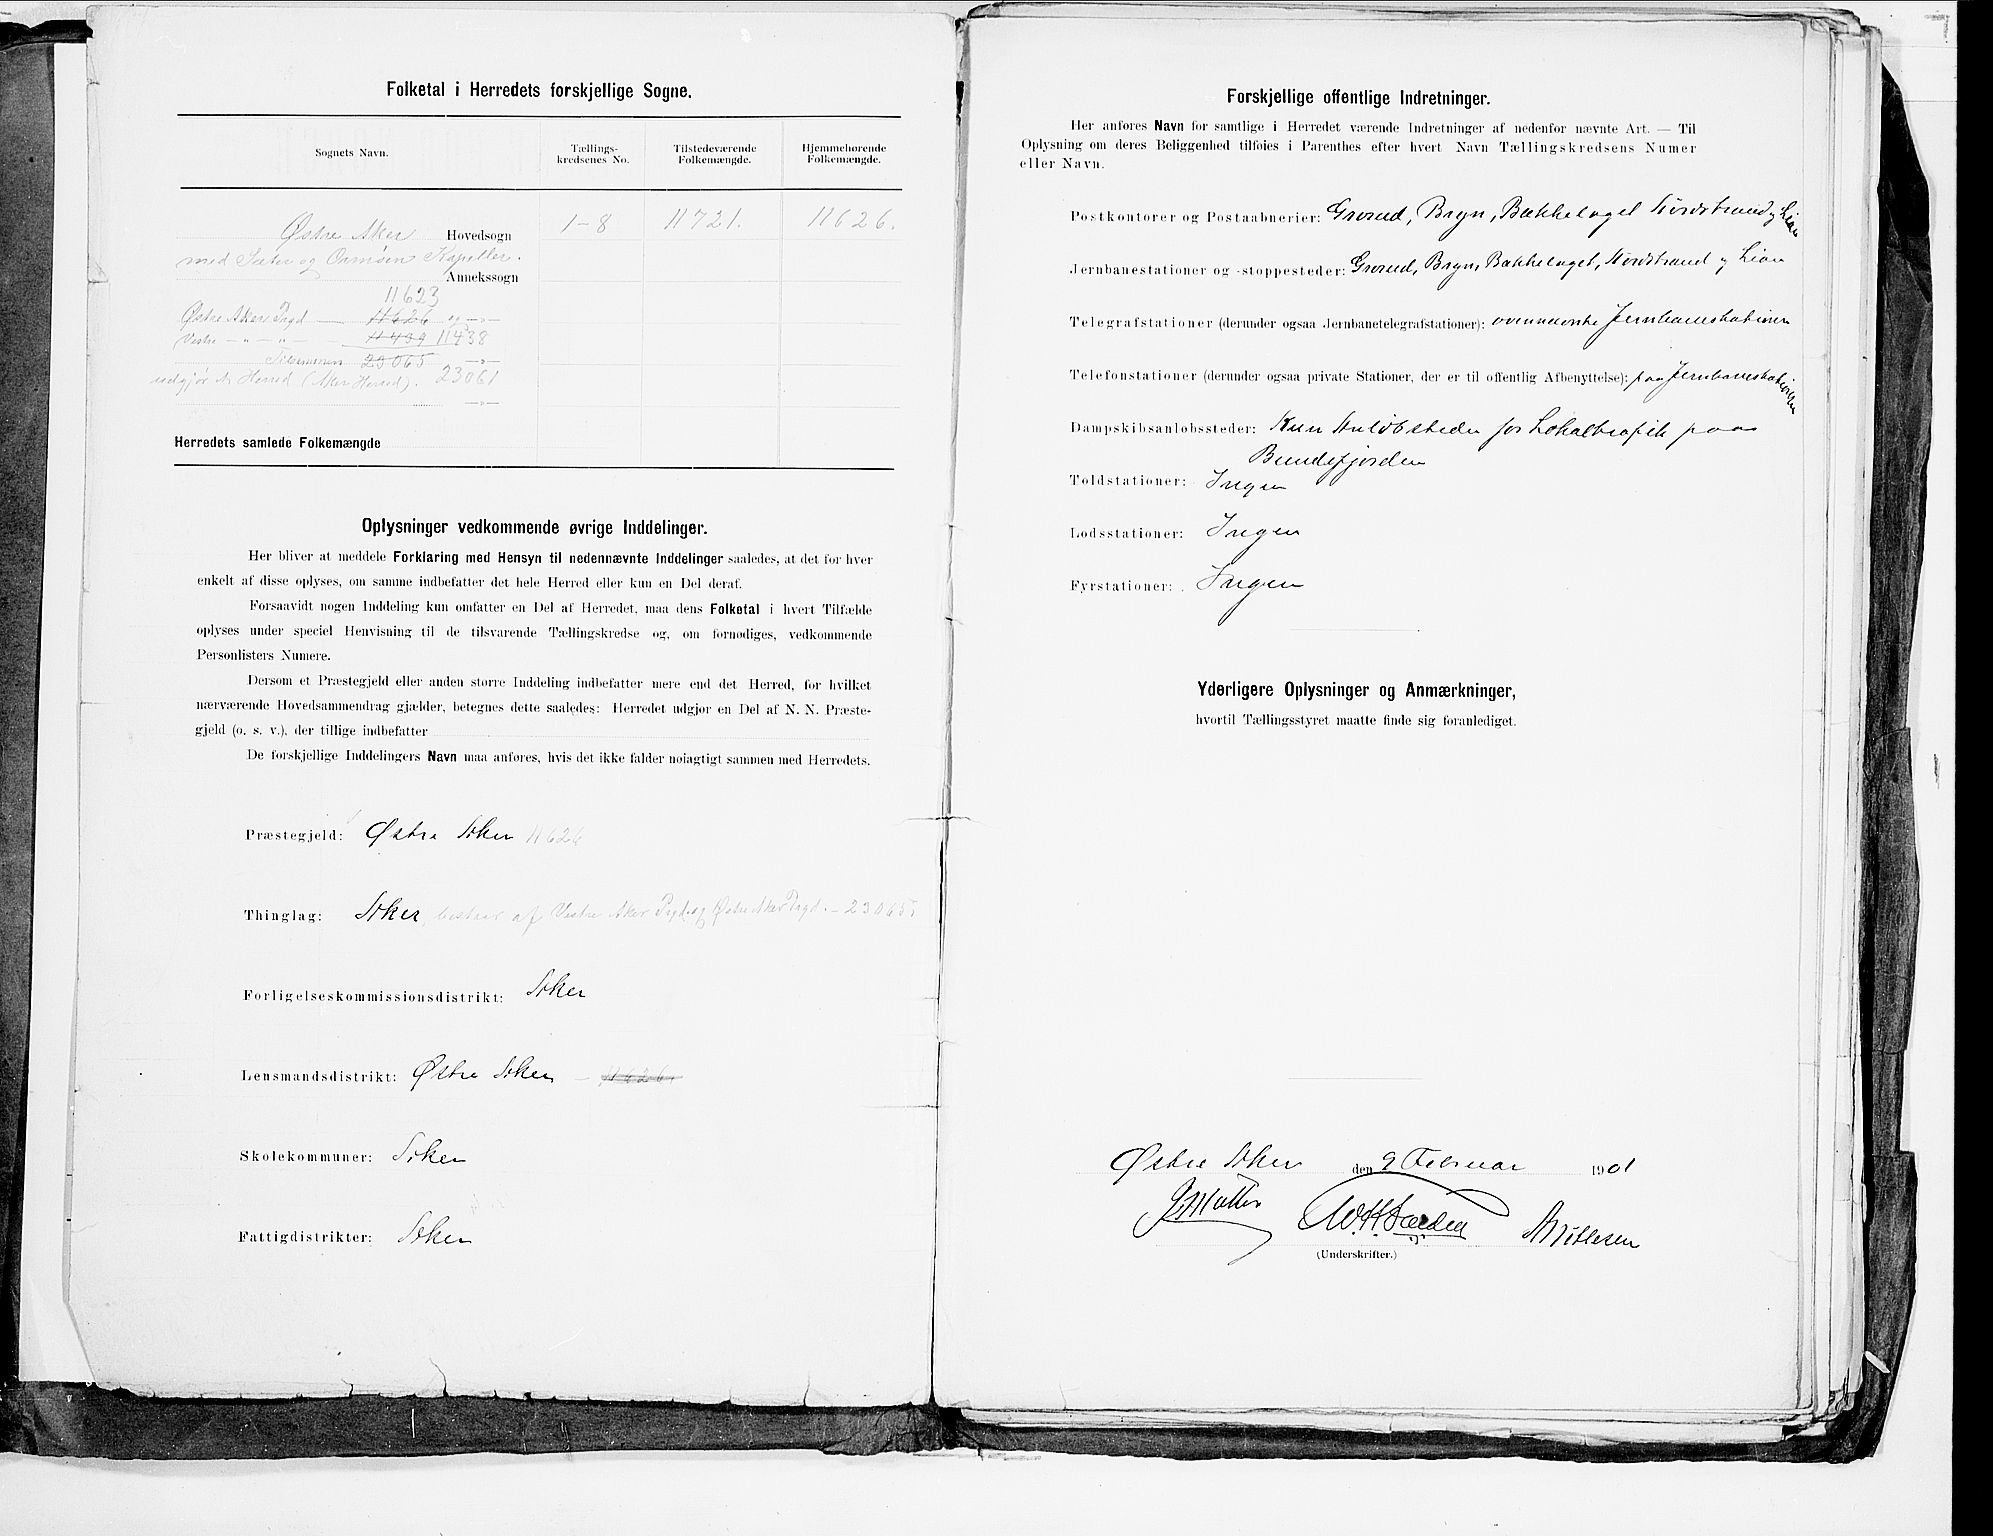 Folketal i Herredets forskjellige Sogne.
Sognets Navn.
Tællings-
kredsenes No.
Tilstedeværende
Folkemængde.
Hjemmehørende
Folkemængde.
Østre Aker Hovedsogn 1-8 11721. 11626.
med Sæter og Ormøen Kapeller.
Annekssogn
11623
Østre Aker Prgd — 11626 og —"—
Vestre — " — " — 11439 11438
Tilsammen 23065 —"—
udgjør A. Herred (Aker Herred). 23061
—"—
Herredets samlede Folkemængde
Oplysninger vedkommende øvrige Inddelinger.
Her bliver at meddele Forklaring med Hensyn til nedennævnte Inddelinger saaledes, at det for hver
enkelt af disse oplyses, om samme indbefatter det hele Herred eller kun en Del deraf.
Forsaavidt nogen Inddeling kun omfatter en Del af Herredet, maa dens Folketal i hvert Tilfælde
oplyses under speciel Henvisning til de tilsvarende Tællingskredse og, om fornødiges, vedkommende
Personlisters Numere.
Dersom et Præstegjeld eller anden større Inddeling indbefatter mere end det Herred, for hvilket
nærværende Hovedsammendrag gjælder, betegnes dette saaledes: Herredet udgjør en Del af N. N. Præste-
gjeld (o. s. v.), der tillige indbefatter
De forskjellige Inddelingers Navn maa anføres, hvis det ikke falder nøiagtigt sammen med Herredets.
Præstegjeld: Østre Aker 11626
Thinglag: Aker, bestaar af Vestre Aker Prgd og Østre Aker Prgd. — 23065
Forligelseskommissionsdistrikt: Aker
Lensmandsdistrikt: Østre Aker — 11626.
Skolekommuner: Aker
Fattigdistrikter: Aker
Forskjellige offentlige Indretninger.
Her anføres Navn for samtlige i Herredet værende Indretninger af nedenfor nævnte Art. — Til
Oplysning om deres Beliggenhed tilføies i Parenthes efter hvert Navn Tællingskredsens Numer
eller Navn.
Postkontorer og Postaabnerier: Grorud, Bryn, Bækkelaget Nordstrand og Lian
Jernbanestationer og -stoppesteder: Grorud, Bryn, Bækkelaget, Nordstrand og Lian
Telegrafstationer (derunder ogsaa Jernbanetelegrafstationer): ovennævnte Jernbanestationer
Telefonstationer (derunder ogsaa private Stationer, der er til offentlig Afbenyttelse): paa Jernbanestationerne
Dampskibsanløbssteder: Kun Anløbsteder for Lokaltrafik paa
Bundefjorden
Toldstationer: Ingen
Lodsstationer: Ingen
Fyrstationer: Ingen
Yderligere Oplysninger og Anmærkninger,
hvortil Tællingsstyret maatte finde sig foranlediget.
Østre Aker den 9 Februar 1901
(Underskrifter.)